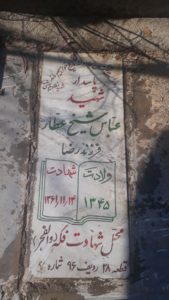 پاسدار
شهید
عباس شیخ عطار
فرزند رضا
ولادت
۱۳۴۵
شهادت
۱۳۶۱/۱۱/۱۴
محل شهادت فکه والفجر
قطعه ۲۸ ردیف ۹۶ شماره